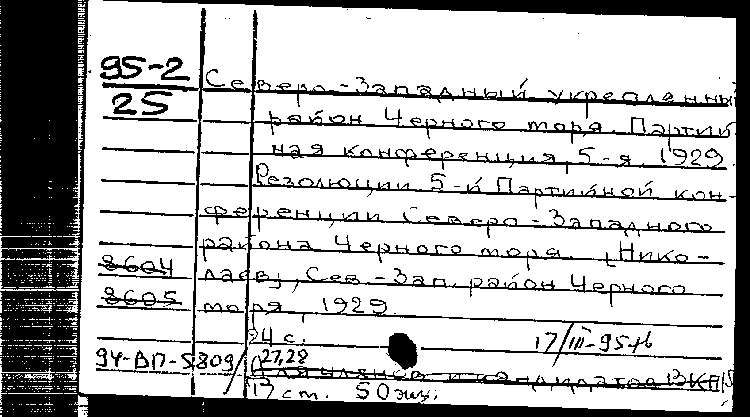 95-2
25
Северо-Западный укрепленный
район Черного моря. Партий-
ная конференция, 5-я, 1929.
Резолюции 5-й Партийной кон-
ференции Северо-Западного
района Черного моря. [Нико-
8604
лаев], Сев.-Зап. район Черного
8605
моря, 1929.
24 с.
17/III-95
94-ВП-5809/27,28
Для членов и кандидатов ВКП/б
13 см. 50 экз.